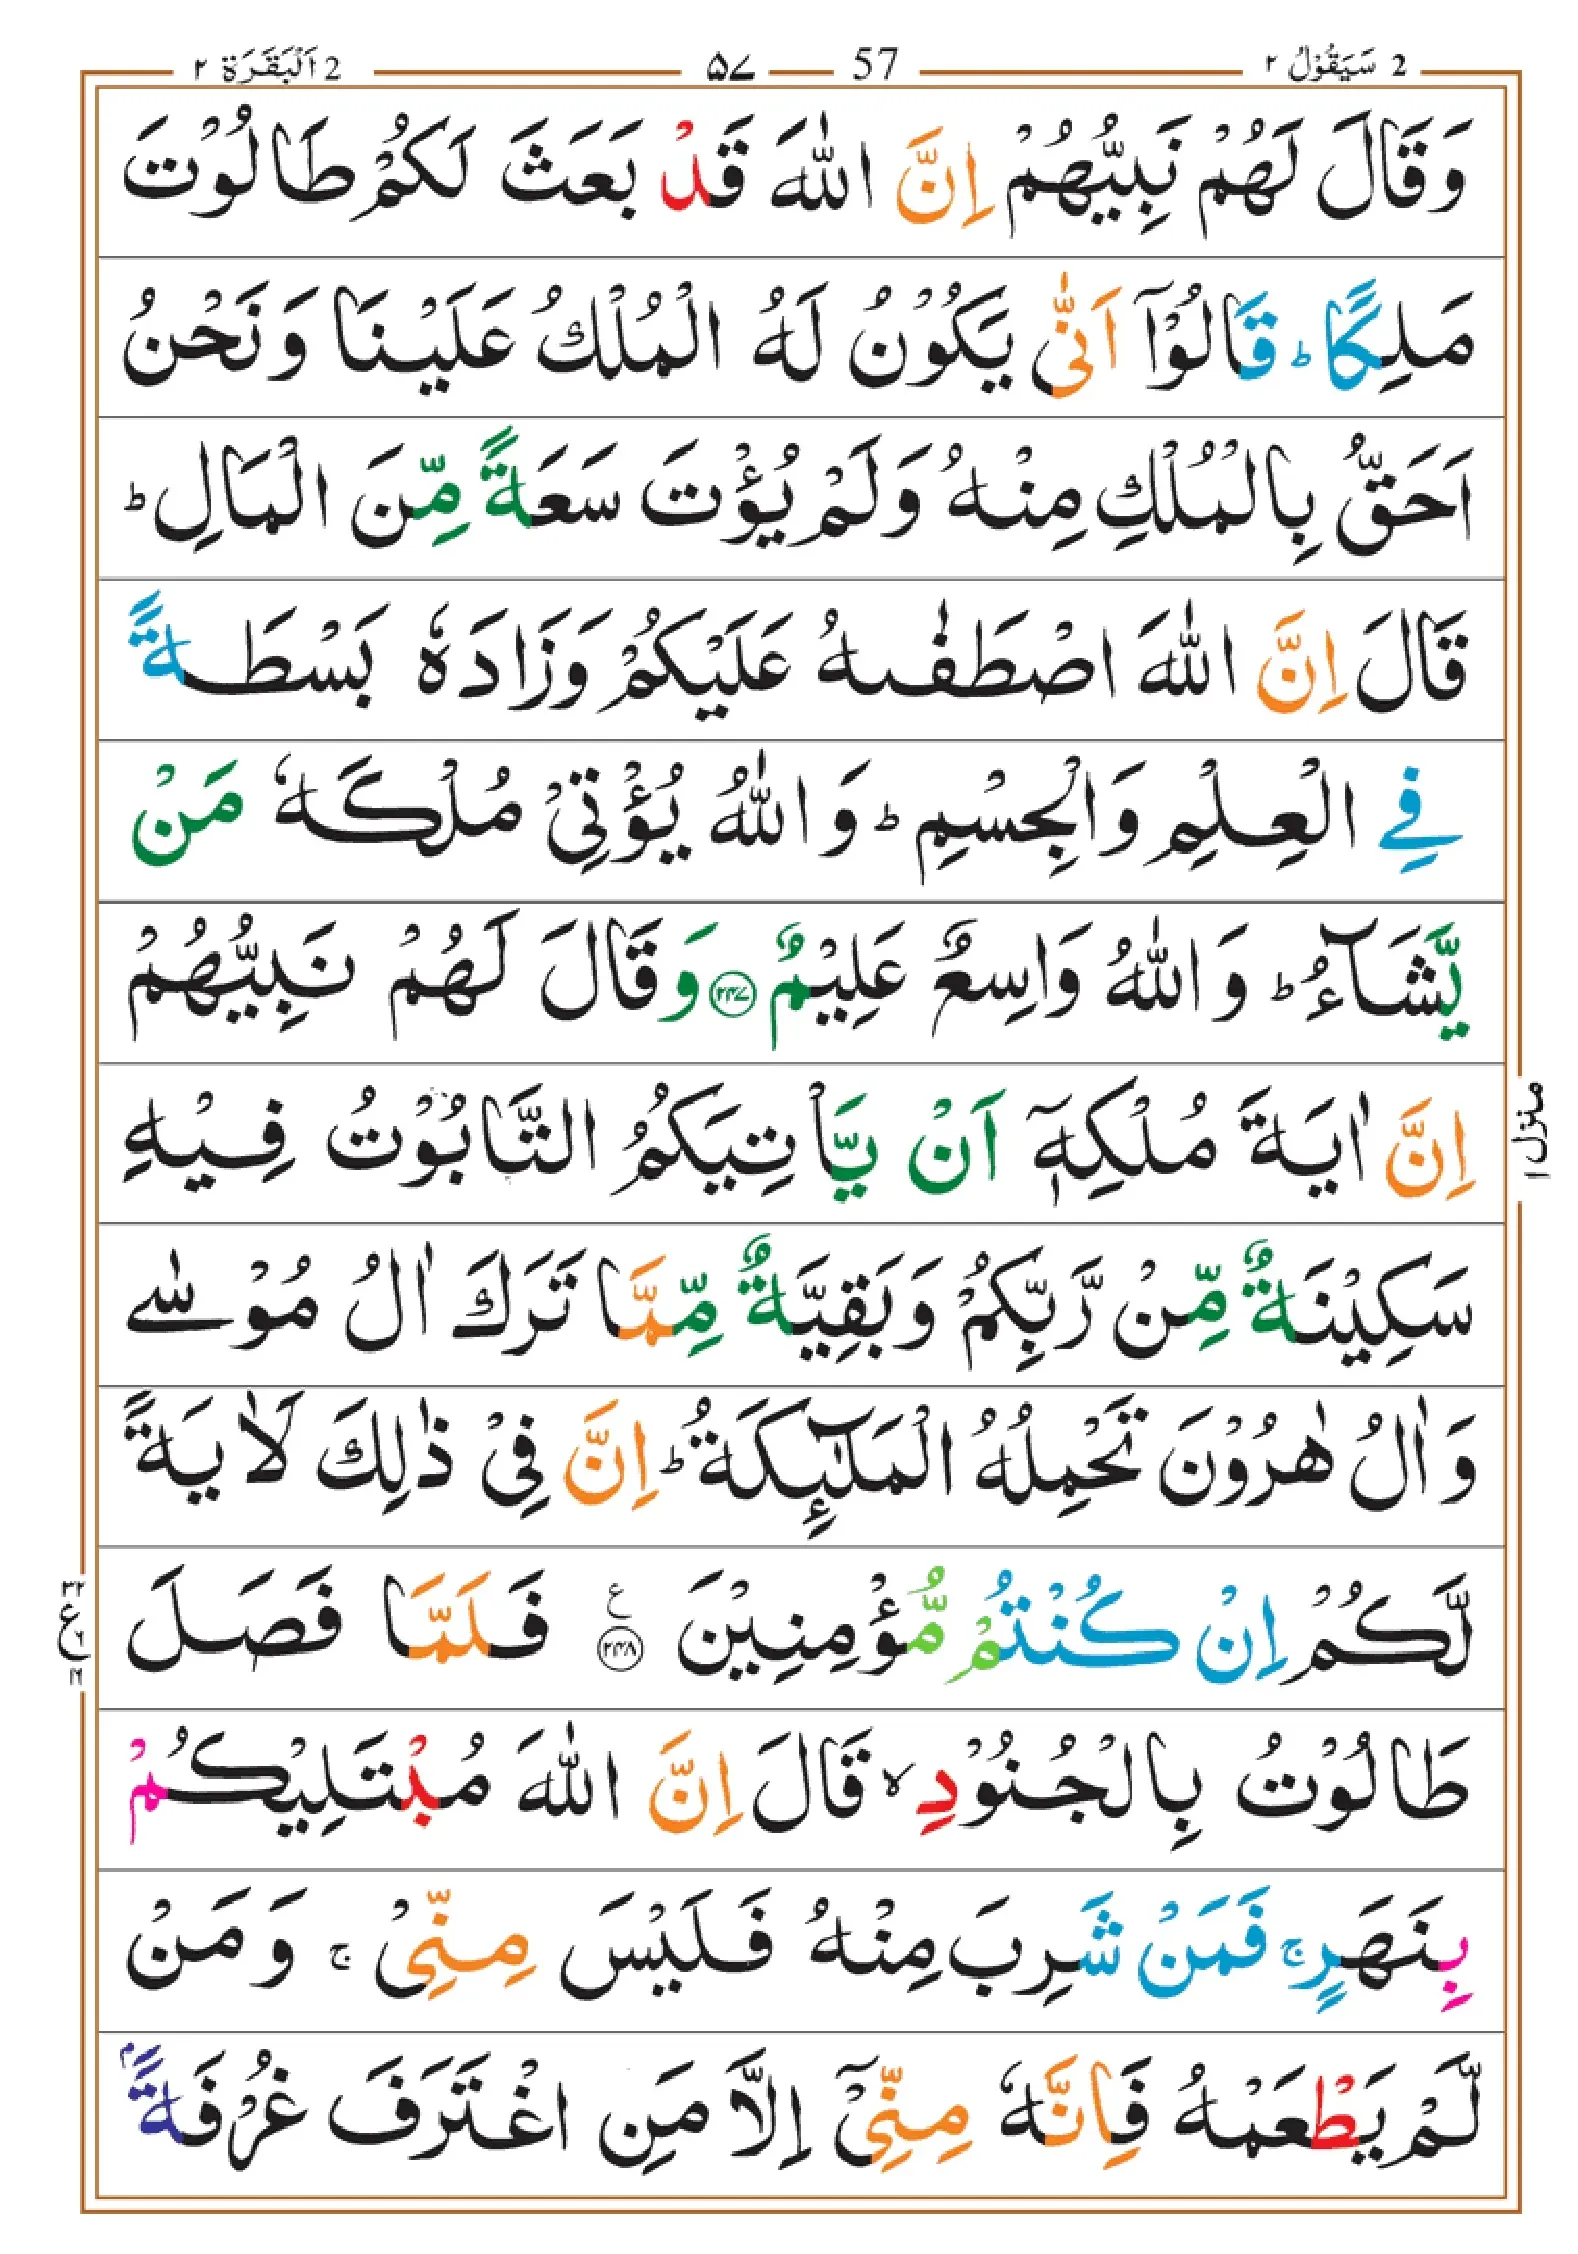 2 اَلْبَقَرَة ٢ ۵۷ 57 2 سَيَقُوْلُ ٢
وَقَالَ لَهُمْ نَبِيُّهُمْ اِنَّ اللّٰهَ قَدْ بَعَثَ لَكُمْ طَالُوْتَ
مَلِكًا ؕ قَالُوْۤا اَنّٰى يَكُوْنُ لَهُ الْمُلْكُ عَلَيْنَا وَنَحْنُ
اَحَقُّ بِالْمُلْكِ مِنْهُ وَلَمْ يُؤْتَ سَعَةً مِّنَ الْمَالِ ؕ
قَالَ اِنَّ اللّٰهَ اصْطَفٰىهُ عَلَيْكُمْ وَزَادَهٗ بَسْطَةً
فِي الْعِلْمِ وَالْجِسْمِ ؕ وَاللّٰهُ يُؤْتِيْ مُلْكَهٗ مَنْ
يَّشَآءُ ؕ وَاللّٰهُ وَاسِعٌ عَلِيْمٌ ﴿۲۴۷﴾ وَقَالَ لَهُمْ نَبِيُّهُمْ
اِنَّ اٰيَةَ مُلْكِهٖۤ اَنْ يَّاْتِيَكُمُ التَّابُوْتُ فِيْهِ
سَكِيْنَةٌ مِّنْ رَّبِّكُمْ وَبَقِيَّةٌ مِّمَّا تَرَكَ اٰلُ مُوْسٰى
وَاٰلُ هٰرُوْنَ تَحْمِلُهُ الْمَلٰٓئِكَةُ ؕ اِنَّ فِيْ ذٰلِكَ لَاٰيَةً
لَّكُمْ اِنْ كُنْتُمْ مُّؤْمِنِيْنَ ﴿۲۴۸﴾ ع فَلَمَّا فَصَلَ
طَالُوْتُ بِالْجُنُوْدِ ۙ قَالَ اِنَّ اللّٰهَ مُبْتَلِيْكُمْ
بِنَهَرٍ ۚ فَمَنْ شَرِبَ مِنْهُ فَلَيْسَ مِنِّيْ ۚ وَمَنْ
لَّمْ يَطْعَمْهُ فَاِنَّهٗ مِنِّيْۤ اِلَّا مَنِ اغْتَرَفَ غُرْفَةًۢ
منزل ۱
۳۲
ع
۲
۱۶